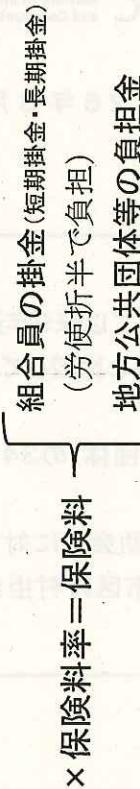 ×保険料率＝保険料
組合員の掛金(短期掛金・長期掛金)
(労使折半で負担)
地方公共団体等の負担金